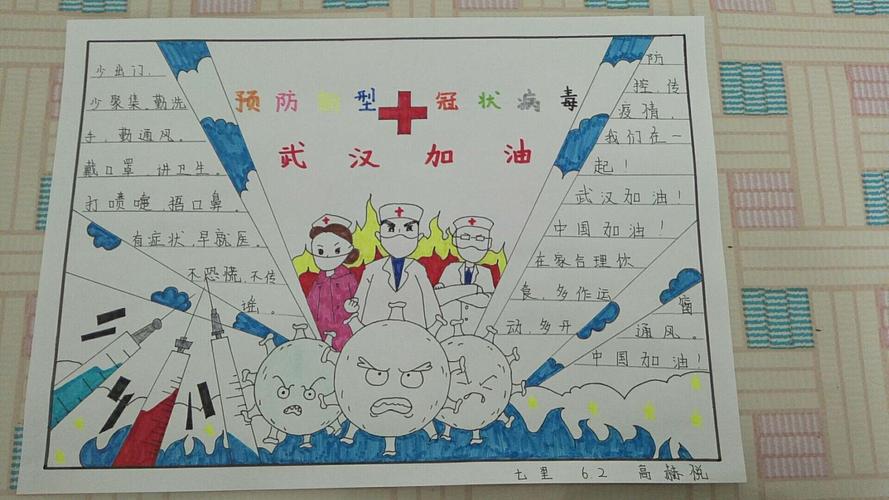 预防新型冠状病毒
武汉加油
少出门、
少聚集、勤洗
手、勤通风。
戴口罩、讲卫生。
打喷嚏、捂口鼻。
有症状、早就医。
不恐慌、不传
谣。
防
控、传
疫情,
我们在一
起！
武汉加油！
中国加油！
在家合理饮
食、多作运
动、多开
窗
通风。
中国加油！
七里 6.2 高 悦